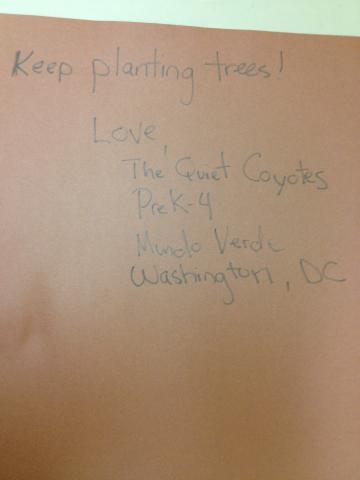 Keep planting trees!
Love,
The Quiet Coyotes
PreK-4
Mundo Verde
Washington, DC